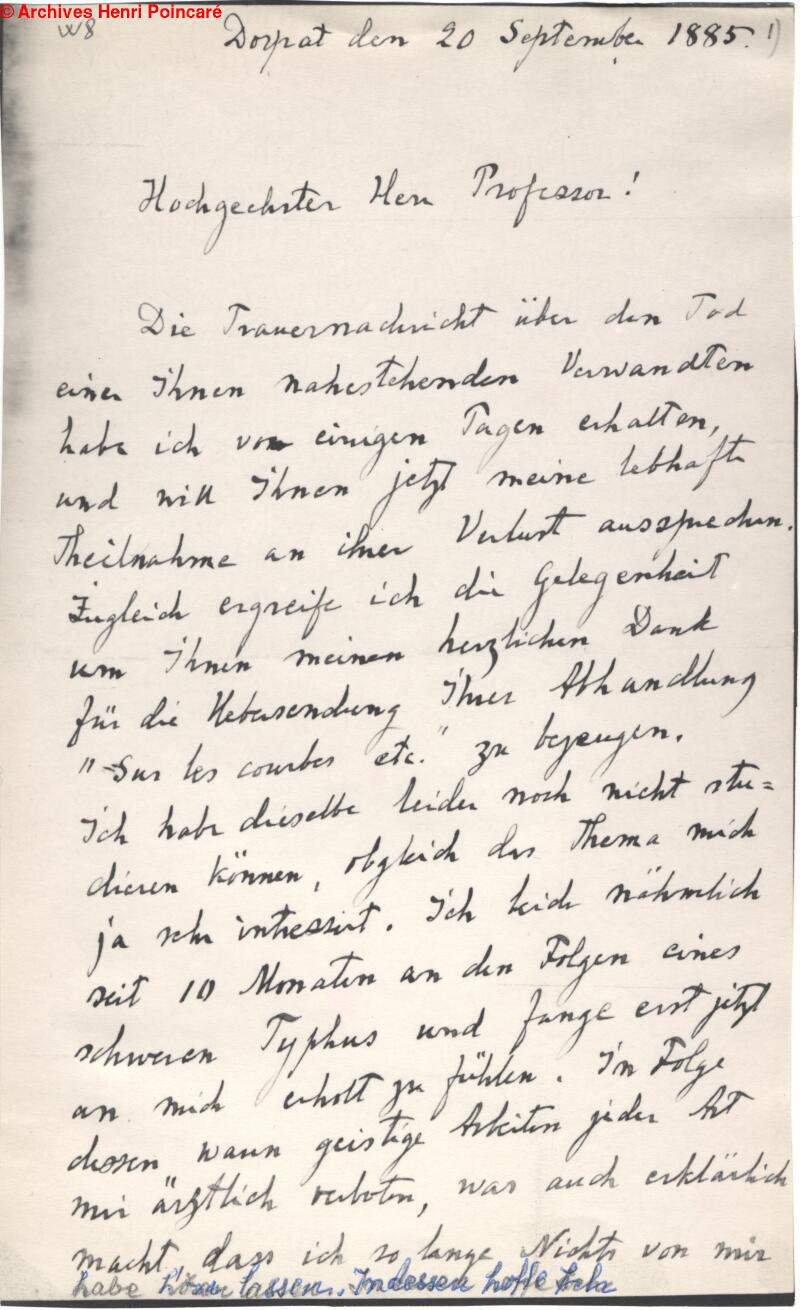 © Archives Henri Poincaré
W8
Dorpat den 20 September 1885. 1)
Hochgeehrter Herr Professor!
Die Trauernachricht über den Tod
einer Ihnen nahestehenden Verwandten
habe ich vor einigen Tagen erhalten,
und will Ihnen jetzt meine lebhafte
Theilnahme an ihrer Verlust aussprechen.
Zugleich ergreife ich die Gelegenheit
um Ihnen meinen herzlichen Dank
für die Uebersendung Ihrer Abhandlung
"Sur les courbes etc." zu bezeugen.
Ich habe dieselbe leider noch nicht stu=
dieren können, obgleich das Thema mich
ja sehr intressirt. Ich leide nähmlich
seit 10 Monaten an den Folgen eines
schweren Typhus und fange erst jetzt
an mich erholt zu fühlen. In Folge
dessen waren geistige Arbeiten jeder Art
mir ärztlich verboten, was auch erklärlich
macht, dass ich so lange Nichts von mir
habe hören lassen. Indessen hoffe ich